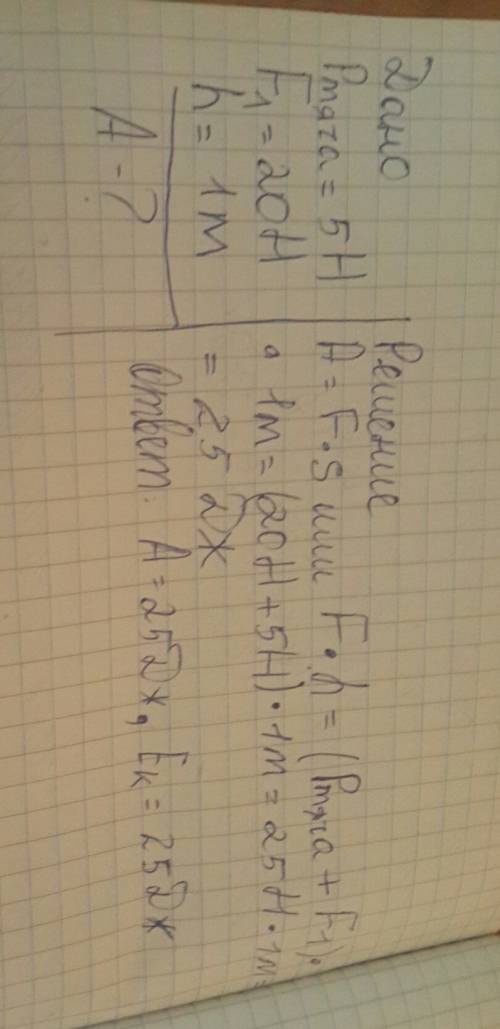 Дано
Pмяча = 5Н
F1 = 20Н
h = 1м
A - ?
Решение
A = F·S или F·h = (Pмяча + F1)·
· 1м = (20Н + 5Н)·1м = 25Н·1м =
= 25 Дж
Ответ. A = 25Дж, Eк = 25Дж